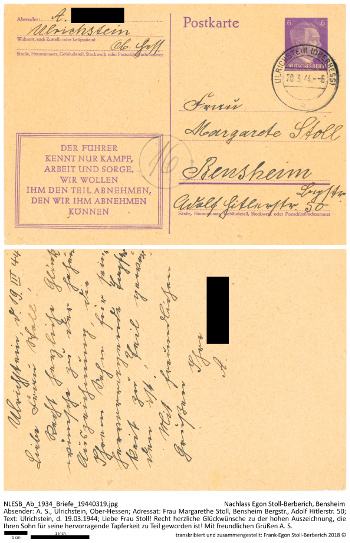 Absender: A.
Ulrichstein
Wohnort, auch Zustell- oder Leitpostamt
Ob. Hess
Straße, Hausnummer, Gebäudeteil, Stockwerk oder Postschließfachnummer
Postkarte
6 6
ULRICHSTEIN (OBERHESS)
20.3.44.-6
Frau
Margarete Stoll
16
Bensheim
Bergstr.
Adolf Hitlerstr. 50
Straße, Hausnummer, Gebäudeteil, Stockwerk oder Postschließfachnummer
DER FÜHRER
KENNT NUR KAMPF,
ARBEIT UND SORGE.
WIR WOLLEN
IHM DEN TEIL ABNEHMEN,
DEN WIR IHM ABNEHMEN
KÖNNEN
Ulrichstein, d. 19 III 44
Liebe Frau Stoll!
Recht herzliche Glück
wünsche zu der hohen
Auszeichnung, die
Ihrem Sohn für seine
hervorragende Tapfer
keit zu Teil gewor
den ist.
Mit freundlichen
Grüßen
Ihre
A.
NLESB_Ab_1934_Briefe_19440319.jpg Nachlass Egon Stoll-Berberich, Bensheim
Absender: A. S., Ulrichstein, Ober-Hessen; Adressat: Frau Margarethe Stoll, Bensheim Bergstr., Adolf Hitlerstr. 50;
Text: Ulrichstein, d. 19.03.1944; Liebe Frau Stoll! Recht herzliche Glückwünsche zu der hohen Auszeichnung, die
Ihren Sohn für seine hervorragende Tapferkeit zu Teil geworden ist! Mit freundlichen Grüßen A. S.
transkribiert und zusammengestellt: Frank-Egon Stoll-Berberich 2018 ©